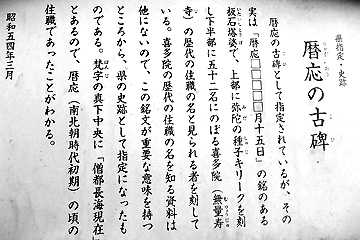 県指定・史跡
暦応の古碑
暦応の古碑として指定されているが、その
実は「暦応□□□□月十五日」の銘のある
板石塔婆で、上部に弥陀の種子キリークを刻
し下半部に五十二名にのぼる喜多院(無量寿
寺)の歴代の住職の名と見られる者を刻して
いる。喜多院の歴代の住職の名を知る資料は
他にないので、この銘文が重要な意味を持つ
ところから、県の史跡として指定になったも
のである。梵字の真下中央に「僧都長海現在」
とあるので、暦応(南北朝時代初期)の頃の
住職であったことがわかる。
昭和五四年三月